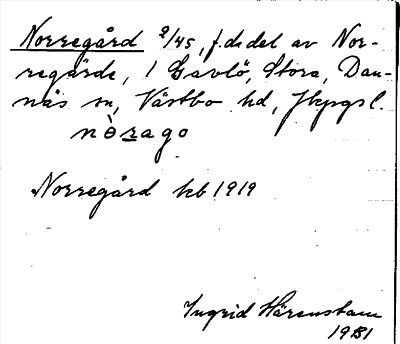 Norregård 2/45, f.d. del av Nor-
regärde, 1 Gavlö, Stora, Dan-
näs sn, Västbo hd, Jkpgs l.
nòrago
Norregård kb 1919
Ingrid Härenstam
1931